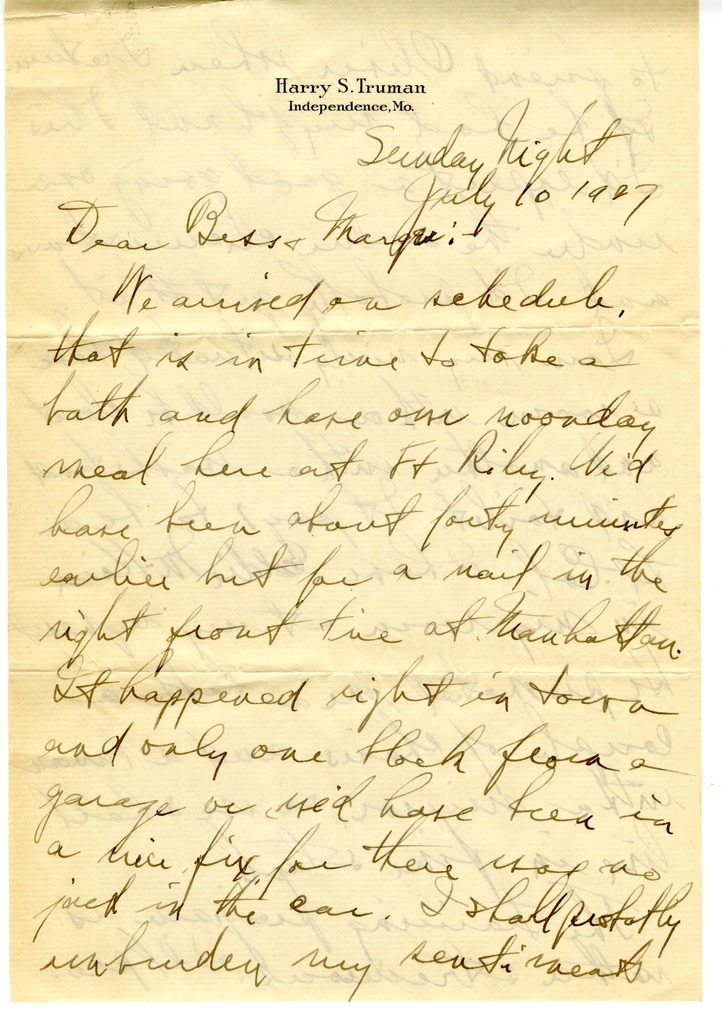 Harry S. Truman
Independence, Mo.
Sunday Night
July 10 1927
Dear Bess & Margie:-
We arrived on schedule,
that is in time to take a
bath and have our noonday
meal here at Ft Riley. We'd
have been about forty minutes
earlier but for a nail in the
right front tire at Manhattan.
It happened right in town
and only one block from a
garage or we'd have been in
a nice fix for there was no
jack in the car. I shall probably
unburden my sentiments